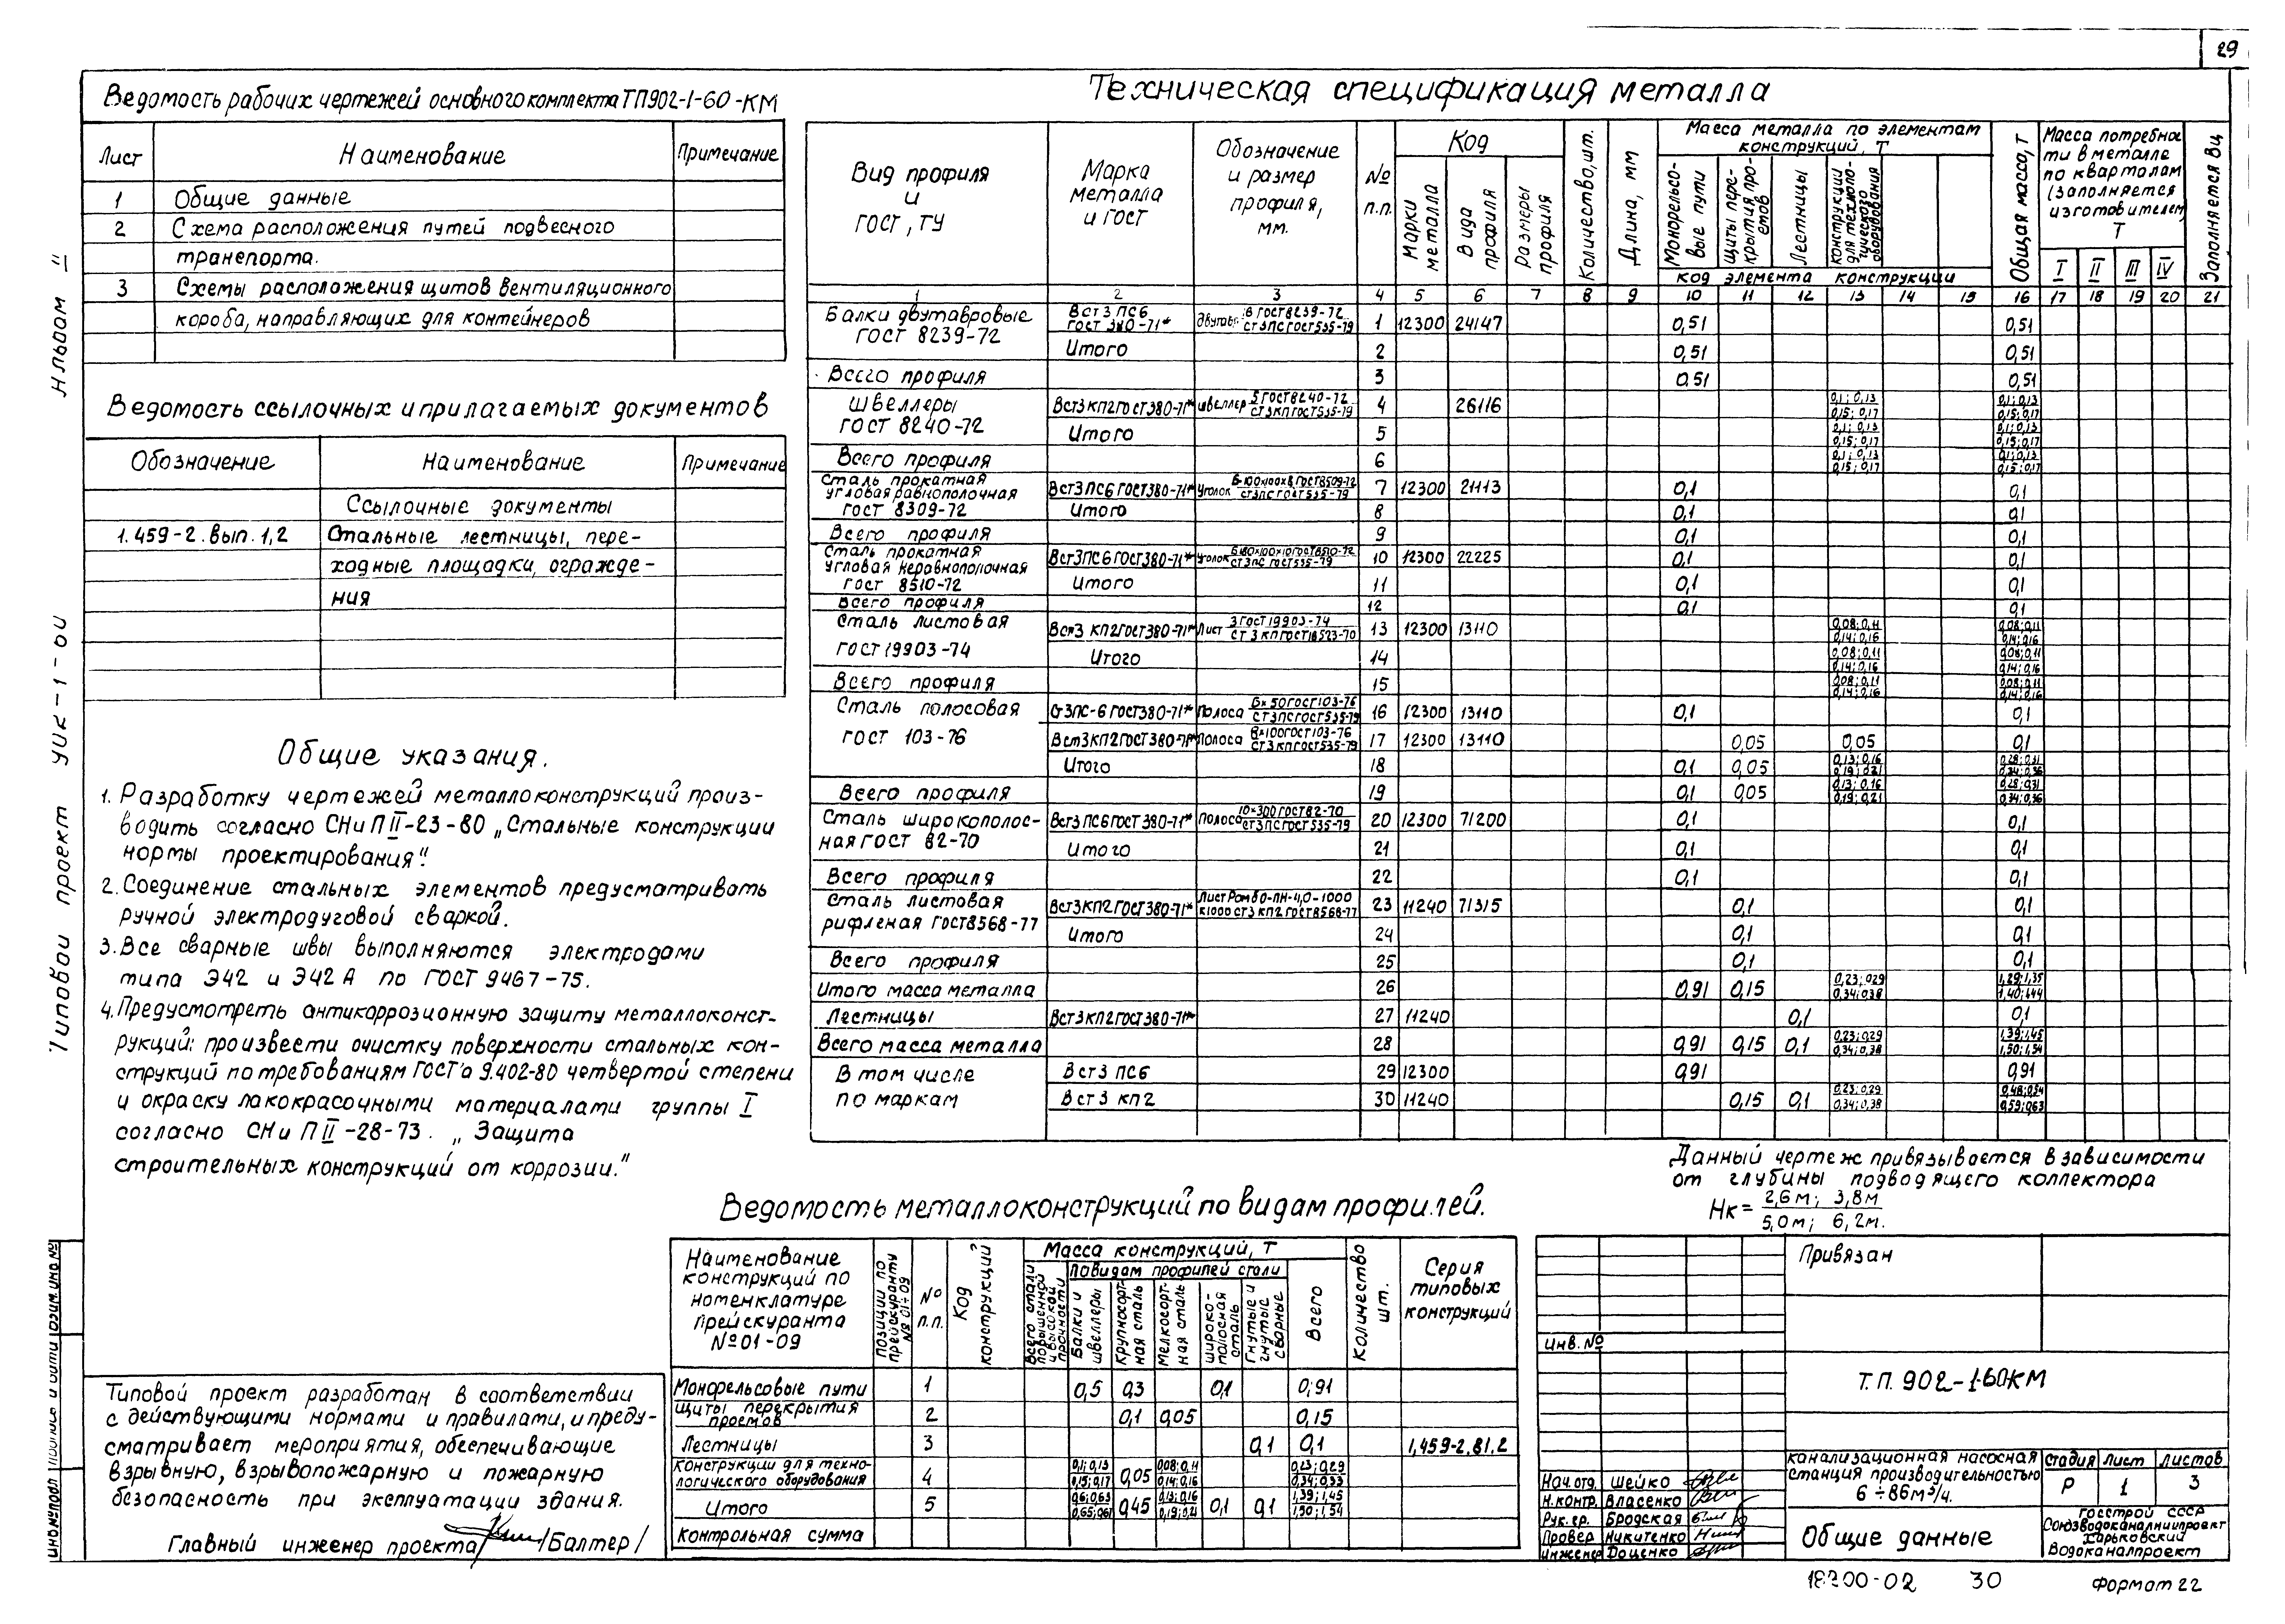 29
Ведомость рабочих чертежей основного комплекта ТП902-1-60-КМ
Лист Наименование Примечание
1 Общие данные
2 Схема расположения путей подвесного
транспорта.
3 Схемы расположения щитов вентиляционного
короба, направляющих для контейнеров
Ведомость ссылочных и прилагаемых документов
Обозначение Наименование Примечание
Ссылочные документы
1.459-2. вып. 1,2 Стальные лестницы, пере-
ходные площадки, огражде-
ния
Общие указания.
1. Разработку чертежей металлоконструкций произ-
водить согласно СНиП II-23-80 „Стальные конструкции
нормы проектирования".
2. Соединение стальных элементов предусматривать
ручной электродуговой сваркой.
3. Все сварные швы выполняются электродами
типа Э42 и Э42А по ГОСТ 9467-75.
4. Предусмотреть антикоррозионную защиту металлоконст-
рукций: произвести очистку поверхности стальных кон-
струкций по требованиям ГОСТ'а 9.402-80 четвертой степени
и окраску лакокрасочными материалами группы I
согласно СНиП II-28-73. „Защита
строительных конструкций от коррозии."
Типовой проект разработан в соответствии
с действующими нормами и правилами, и преду-
сматривает мероприятия, обеспечивающие
взрывную, взрывопожарную и пожарную
безопасность при эксплуатации здания.
Главный инженер проекта /Балтер/
Техническая спецификация металла
Вид профиля и ГОСТ, ТУ
Марка металла и ГОСТ
Обозначение и размер профиля, мм.
№ п.п.
Код
Марки металла
Вида профиля
Размеры профиля
Количество, шт.
Длина, мм
Масса металла по элементам конструкций, Т
Монорельсо-вые пути
Щиты пере-крытия про-емов
Лестницы
Конструкции для техноло-гического оборудования
код элемента конструкции
Общая масса, т
Масса потребнос-ти в металле по кварталам (заполняется изготовителем) Т
I II III IV
Заполняется ВЦ
1 2 3 4 5 6 7 8 9 10 11 12 13 14 15 16 17 18 19 20 21
Балки двутавровые ГОСТ 8239-72 Вст3 ПС6 ГОСТ 380-71* 1 12300 24147 0,51 0,51
Итого 2 0,51 0,51
Всего профиля 3 0.51 0,51
Швеллеры ГОСТ 8240-72 ВСт3КП2ГОСТ380-71* швеллер 5 ГОСТ8240-72 СТ3КПГОСТ535-79 4 26116 0,1; 0,13 0,15; 0,17 0,1; 0,13 0,15; 0,17
Итого 5 0,1; 0,13 0,15; 0,17 0,1; 0,13 0,15; 0,17
Всего профиля 6 0,1; 0,13 0,15; 0,17 0,1; 0,13 0,15; 0,17
Сталь прокатная угловая равнополочная ГОСТ 8309-72 Вст3ПС6ГОСТ380-71* Уголок Б-100х100х8ГОСТ8509-72 СТ3ПСГОСТ535-79 7 12300 21113 0,1 0,1
Итого 8 0,1 0,1
Всего профиля 9 0,1 0,1
Сталь прокатная угловая неравнополочная ГОСТ 8510-72 ВСт3ПС6ГОСТ380-71* Уголок 10 12300 22225 0,1 0,1
Итого 11 0,1 0,1
Всего профиля 12 0,1 0,1
Сталь листовая ГОСТ 19903-74 Вст3 КП2ГОСТ380-71* Лист 3ГОСТ19903-74 13 12300 13110 0,08; 0,11 0,14; 0,16 0,08; 0,11 0,14; 0,16
Итого 14 0,08; 0,11 0,14; 0,16 0,08; 0,11 0,14; 0,16
Всего профиля 15 0,08; 0,11 0,14; 0,16 0,08; 0,11 0,14; 0,16
Сталь полосовая Ст3ПС-6ГОСТ380-71* Полоса 6х50ГОСТ103-76 СТ3ПСГОСТ535-79 16 12300 13110 0,1 0,1
ГОСТ 103-76 Вст3КП2ГОСТ380-71* Полоса 8х100ГОСТ103-76 СТ3КПГОСТ535-79 17 12300 13110 0,05 0,05 0,1
Итого 18 0,1 0,05 0,13; 0,16 0,19; 0,21 0,28; 0,31 0,34; 0,36
Всего профиля 19 0,1 0,05 0,13; 0,16 0,19; 0,21 0,28; 0,31 0,34; 0,36
Сталь широкополос-ная ГОСТ 82-70 Вст3ПС6ГОСТ380-71* Полоса 10х300ГОСТ82-70 СТ3ПСГОСТ535-79 20 12300 71200 0,1 0,1
Итого 21 0,1 0,1
Всего профиля 22 0,1 0,1
Сталь листовая рифленая ГОСТ8568-77 ВСт3КП2ГОСТ380-71* Лист Ромб 0-ПН-4,0-1000 х1000 СТ3 КП2 ГОСТ8568-77 23 11240 71315 0,1 0,1
Итого 24 0,1 0,1
Всего профиля 25 0,1 0,1
Итого масса металла 26 0,91 0,15 0,23; 0,29 0,34; 0,38 1,29; 1,35 1,40; 1,44
Лестницы ВСт3КП2ГОСТ380-71* 27 11240 0,1 0,1
Всего масса металла 28 0,91 0,15 0,1 0,23; 0,29 0,34; 0,38 1,39; 1,45 1,50; 1,54
В том числе Вст3 ПС6 29 12300 0,91 0,91
по маркам Вст3 КП2 30 11240 0,15 0,1 0,23; 0,29 0,34; 0,38 0,48; 0,54 0,59; 0,63
Данный чертеж привязывается в зависимости
от глубины подводящего коллектора
Нк = 2,6м; 3,8м
5,0м; 6,2м.
Ведомость металлоконструкций по видам профилей.
Наименование конструкций по номенклатуре прейскуранта №01-09
Позиции по прейскуранту №01÷09
№ п.п.
Код конструкций
Масса конструкций, Т
Всего стали повышенной и высокой прочности
По видам профилей стали
Балки и швеллеры
Крупносорт-ная сталь
Мелкосорт-ная сталь
Широко-полосная сталь
Гнутые и гнутые сварные
Всего
Количество шт.
Серия типовых конструкций
Монорельсовые пути 1 0,5 0,3 0,1 0,91
Щиты перекрытия проемов 2 0,1 0,05 0,15
Лестницы 3 0,1 0,1 1,459-2. В1.2
Конструкции для техно-логического оборудования 4 0,1; 0,13 0,15; 0,17 0,05 0,08; 0,11 0,14; 0,16 0,23; 0,29
Итого 5 0,6; 0,63 0,45 0,13; 0,16 0,19; 0,21 0,1 0,1 1,39; 1,45 1,50; 1,54
Контрольная сумма
Привязан
Инв. №
Т.П. 902-1-60КМ
Канализационная насосная
станция производительностью
6÷86м³/ч.
Стадия Лист Листов
Р 1 3
Нач. отд. Шейко
Н.контр. Власенко
Рук. гр. Бродская
Провер Никитенко
Инженер Доценко
Общие данные
Госстрой СССР
Союзводоканалниипроект
Харьковский
Водоканалпроект
18200-02 30 Формат 22
Альбом II
Типовой проект